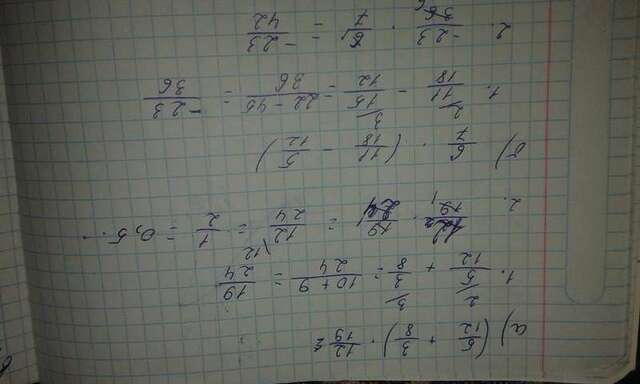 а) (5/12 + 3/8) · 12/19 =
1. 5/12 \2 + 3/8 \3 = 10+9/24 = 19/24
2. 12/19 · 19/24 = 12/24 \12 = 1/2 = 0,5.
б) 6/7 · (11/18 - 5/12)
1. 11/18 \2 - 15/12 \3 = 22-45/36 = -23/36
2. -23/36 · 6/7 = -23/42